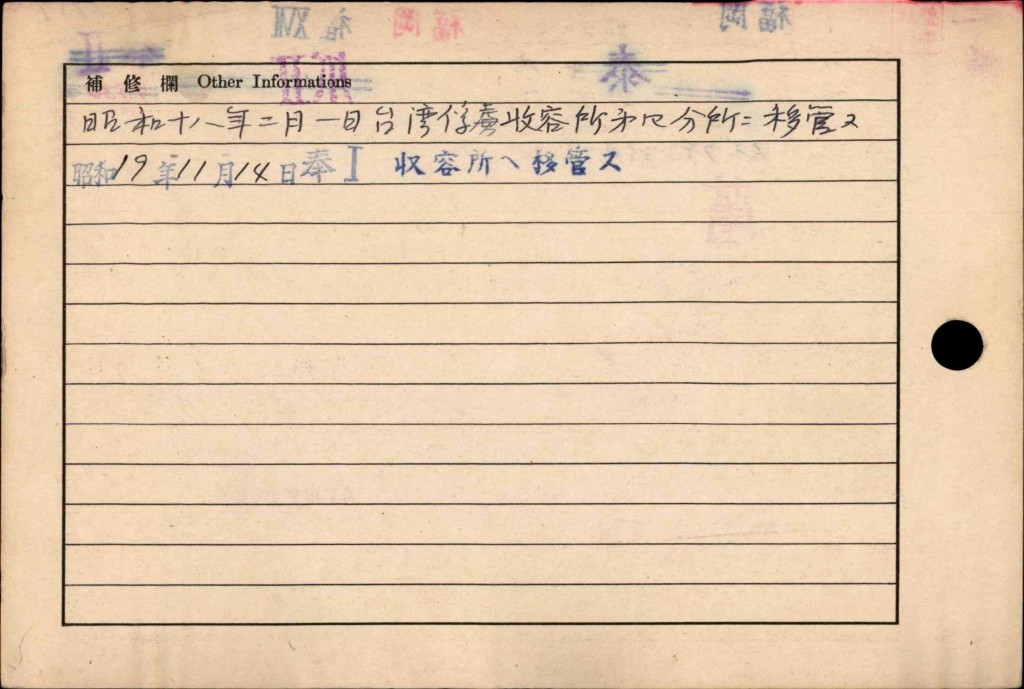 奉
補修欄 Other Informations
昭和十八年二月一日台湾俘虜收容所第四分所ニ移管ス
昭和19年11月14日奉Ⅰ 収容所へ移管ス